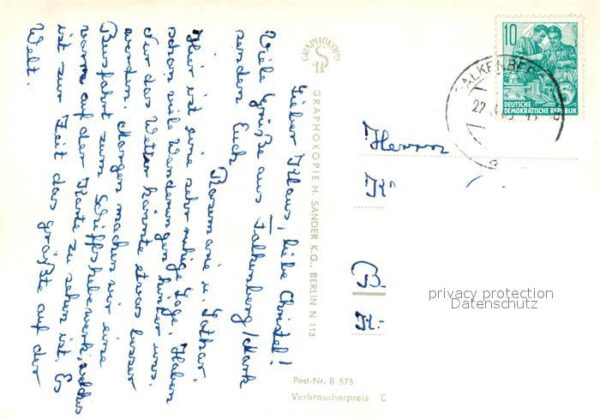 Lieber Klaus, liebe Christel!
Viele Grüße aus Falkenberg/Mark
senden Euch
Rosemarie u. Lothar
Hier ist eine sehr ruhige Lage. Haben
schon viele Wanderungen hinter uns.
Nur das Wetter könnte etwas besser
werden. Morgen machen wir eine
Busfahrt zum Schiffshebewerk, welches
vorne auf der Karte zu sehen ist. Es
ist zur Zeit das größte auf der
Welt.
GRAPHOKOPIE
GRAPHOKOPIE H. SANDER K.G., BERLIN N 113
10
DEUTSCHE
DEMOKRATISCHE REPUBLIK
FALKENBERG
22
Herrn
K
B
K
privacy protection
Datenschutz
Post-Nr. B 575
Verbraucherpreis D